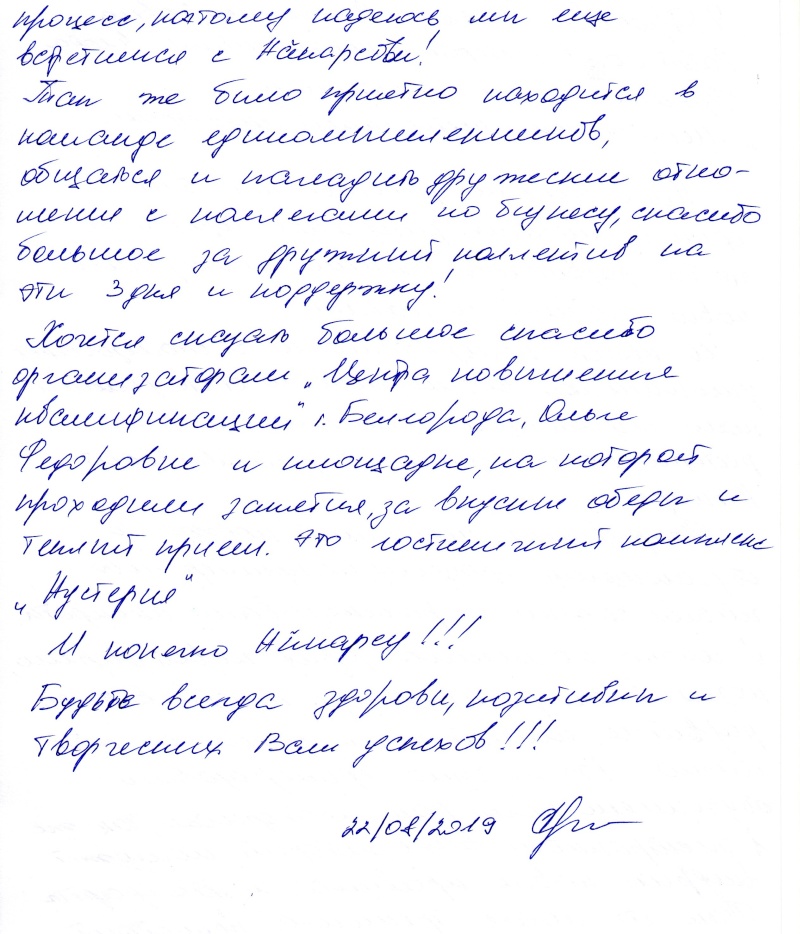 процесс, поэтому надеюсь мы еще
встретимся с Аймарсом!
Так же было приятно находится в
команде единомышленников,
общаться и наладить дружеские отно-
шения с коллегами по бизнесу, спасибо
большое за дружный коллектив на
эти 3 дня и поддержку!
Хочется сказать большое спасибо
организаторам „Центра повышения
квалификации" г. Белгорода, Ольге
Федоровне и площадке, на которой
проходили занятия, за вкусные обеды и
теплый прием. Это гостиничный комплекс
„Аустерия"
И конечно Аймарсу!!!
Будьте всегда здоровы, позитивны и
творческих Вам успехов!!!
22/08/2019